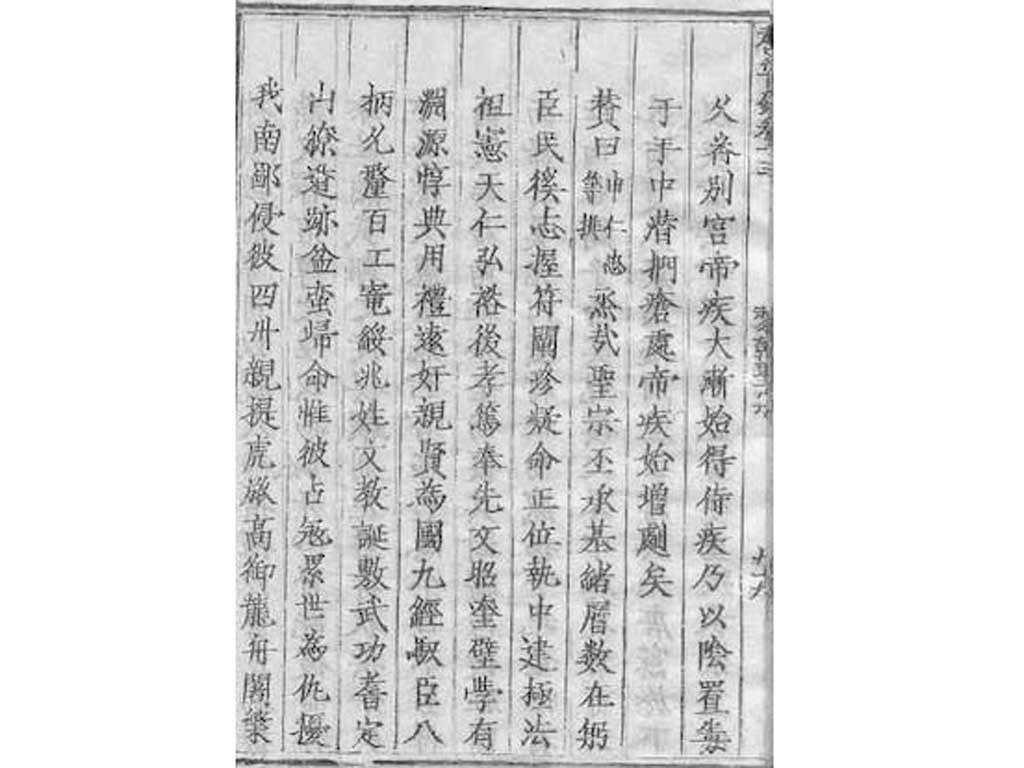 久斥別宮帝疾大漸始得侍疾乃以陰置毒
于手中潜捫瘡處帝疾始增劇矣
賛曰申仁忠等撰烝哉聖宗丕承基緒曆數在躬
臣民徯志握符闡珍凝命正位執中建極法
祖憲天仁弘裕後孝篤奉先文昭奎壁學有
淵源惇典用禮遠奸親賢為國九經馭臣八
柄允釐百工寵綏兆姓文教誕敷武功耆定
山獠遁跡盆蛮歸命惟彼占冤累世為仇擾
我南鄙侵彼四州親提虎旅高御龍舟闍槃